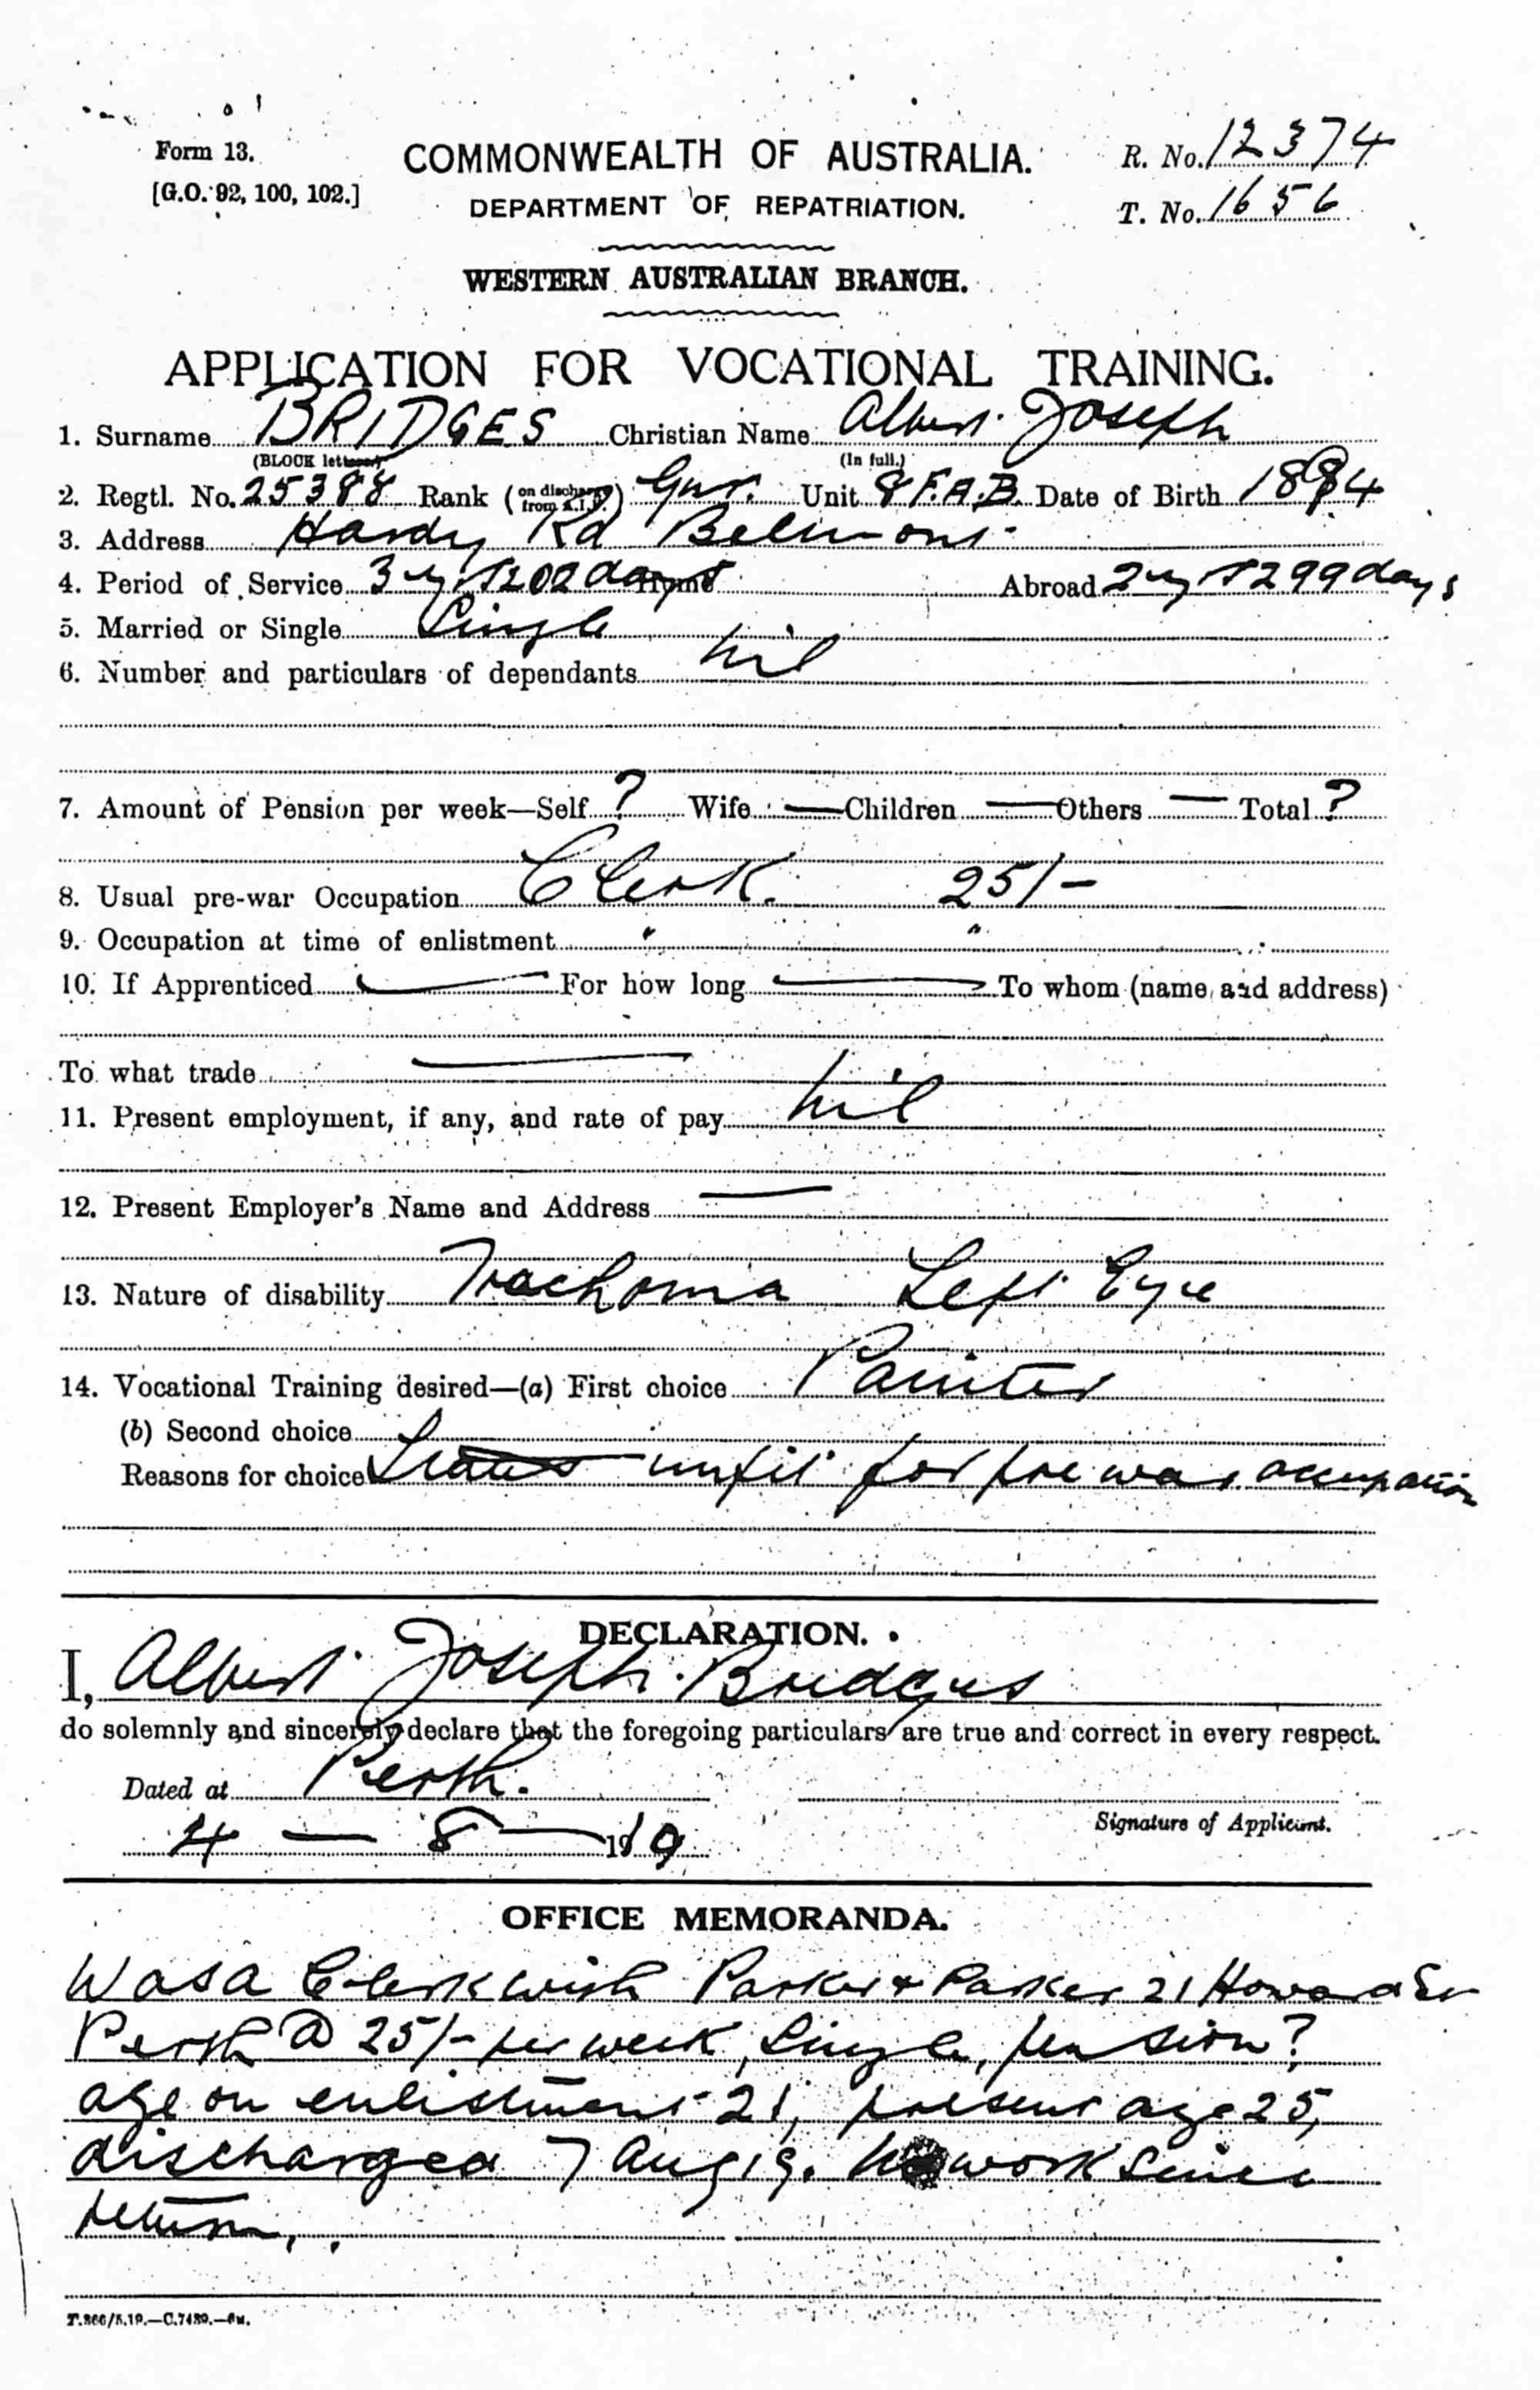 Form 13.
[G.O. 92, 100, 102.]
COMMONWEALTH OF AUSTRALIA.
DEPARTMENT OF REPATRIATION.
R. No. 12374
T. No. 1656
WESTERN AUSTRALIAN BRANCH.
APPLICATION FOR VOCATIONAL TRAINING.
1. Surname BRIDGES Christian Name Albert Joseph
(BLOCK letters) (In full.)
2. Regtl. No. 25388 Rank (on discharge from A.I.F.) Gnr. Unit 8 F.A.B. Date of Birth 1894
3. Address Hardy Rd Belmont
4. Period of Service 3 yrs 202 days Abroad 2 yrs 299 days
5. Married or Single Single
6. Number and particulars of dependants nil
7. Amount of Pension per week—Self ? Wife — Children — Others — Total ?
8. Usual pre-war Occupation Clerk. 25/-
9. Occupation at time of enlistment " "
10. If Apprenticed — For how long — To whom (name and address)
To what trade —
11. Present employment, if any, and rate of pay nil
12. Present Employer's Name and Address —
13. Nature of disability Trachoma Left Eye
14. Vocational Training desired—(a) First choice Painter
(b) Second choice
Reasons for choice unfit for pre war occupation
DECLARATION.
I, Albert Joseph Bridges
do solemnly and sincerely declare that the foregoing particulars are true and correct in every respect.
Dated at Perth.
4 — 8 — 1919
Signature of Applicant.
OFFICE MEMORANDA.
Was a Clerk with Parker & Parker 21 Howard St
Perth @ 25/- per week, Single, pension?
age on enlistment 21, present age 25,
discharged 7 Aug 19. No work since
return.
T.866/5.19.—C.7489.—6M.